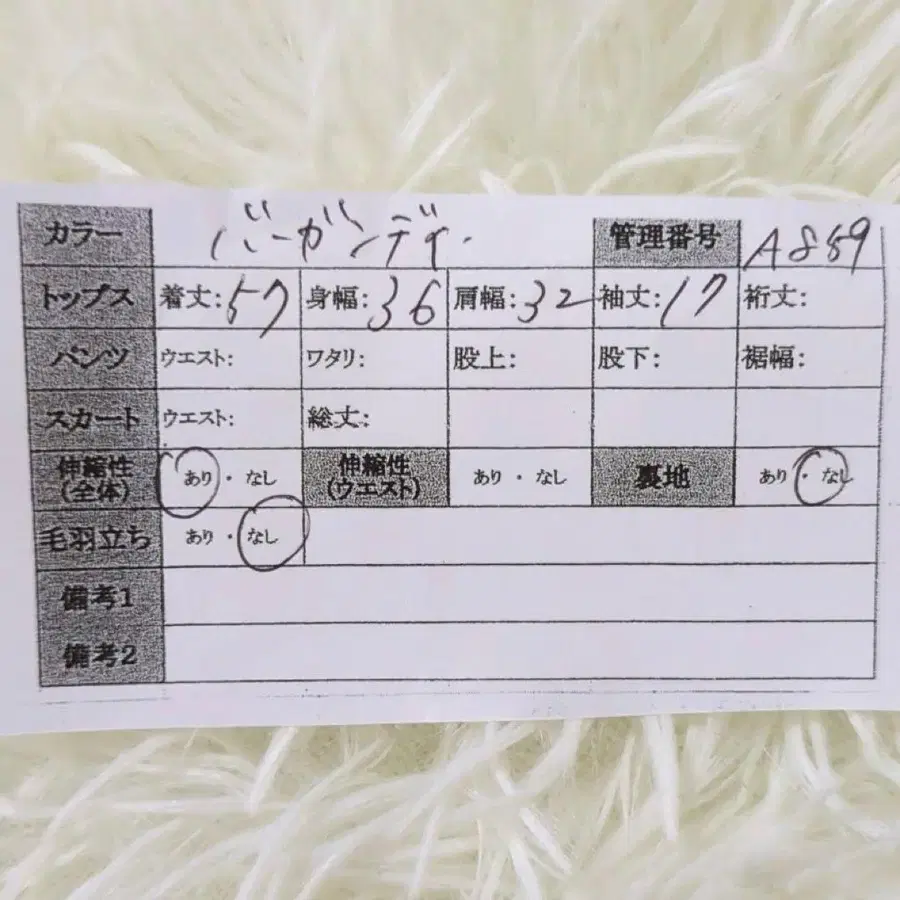 カラー バーガンディー 管理番号 A859
トップス 着丈:57 身幅:36 肩幅:32 袖丈:17 裄丈:
パンツ ウエスト: ワタリ: 股上: 股下: 裾幅:
スカート ウエスト: 総丈:
伸縮性(全体) あり・なし 伸縮性(ウエスト) あり・なし 裏地 あり・なし
毛羽立ち あり・なし
備考1
備考2